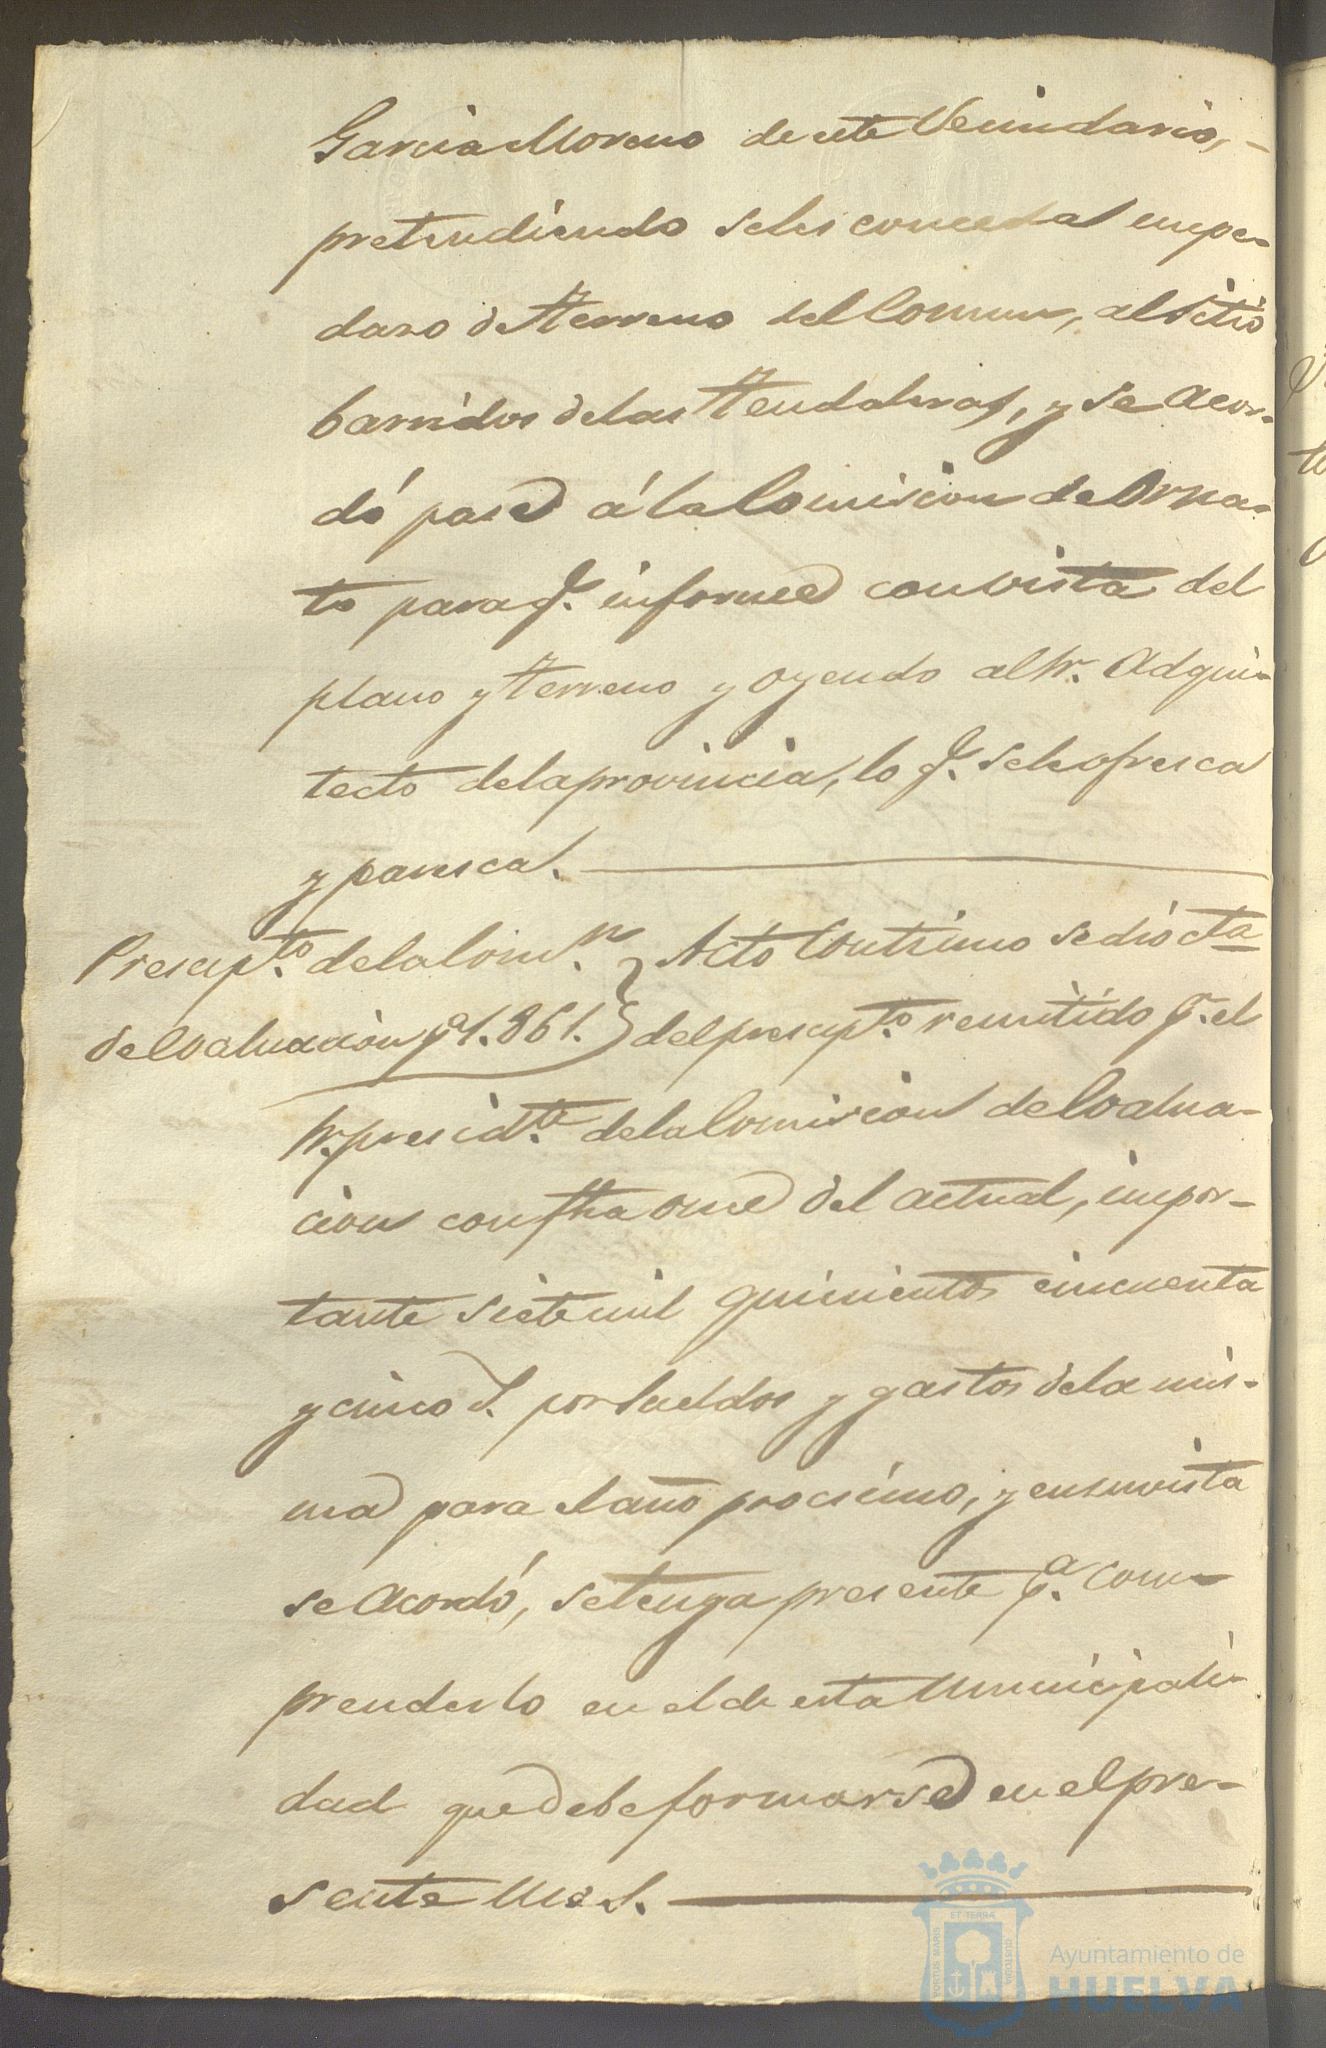 Garcia Moreno de este Vecindario,-
pretendiendo seles conceda un pe-
daso de Terreno del Comun, al Sitio
barridos de las Tendaleras, y se acor-
dó pase á la Comision de Orna-
to para q.e informe con vista del
plano y Terreno y oyendo al Sr. Adqui-
tecto de la provincia, lo q.e sele ofresca
y paresca.
Presup.to de la Com.n
de Evaluacion p.a 1.861.
Acto Contínuo se dió cta
del presup.to remitido p.r el
Sr. presid.te de la Comision de Evalua-
cion con fha once del actual, impor-
tante siete mil quinientos cincuenta
y cinco r.s por Sueldos y gastos de la mis-
ma para el año procsimo, y en su vista
se Acordó, se tenga presente p.a com-
prenderlo en el de esta Municipali-
dad que debe formarse en el pre-
sente Mes.
ET TERRÆ
PORTUS MARIS
CUSTODIA
Ayuntamiento de
HUELVA